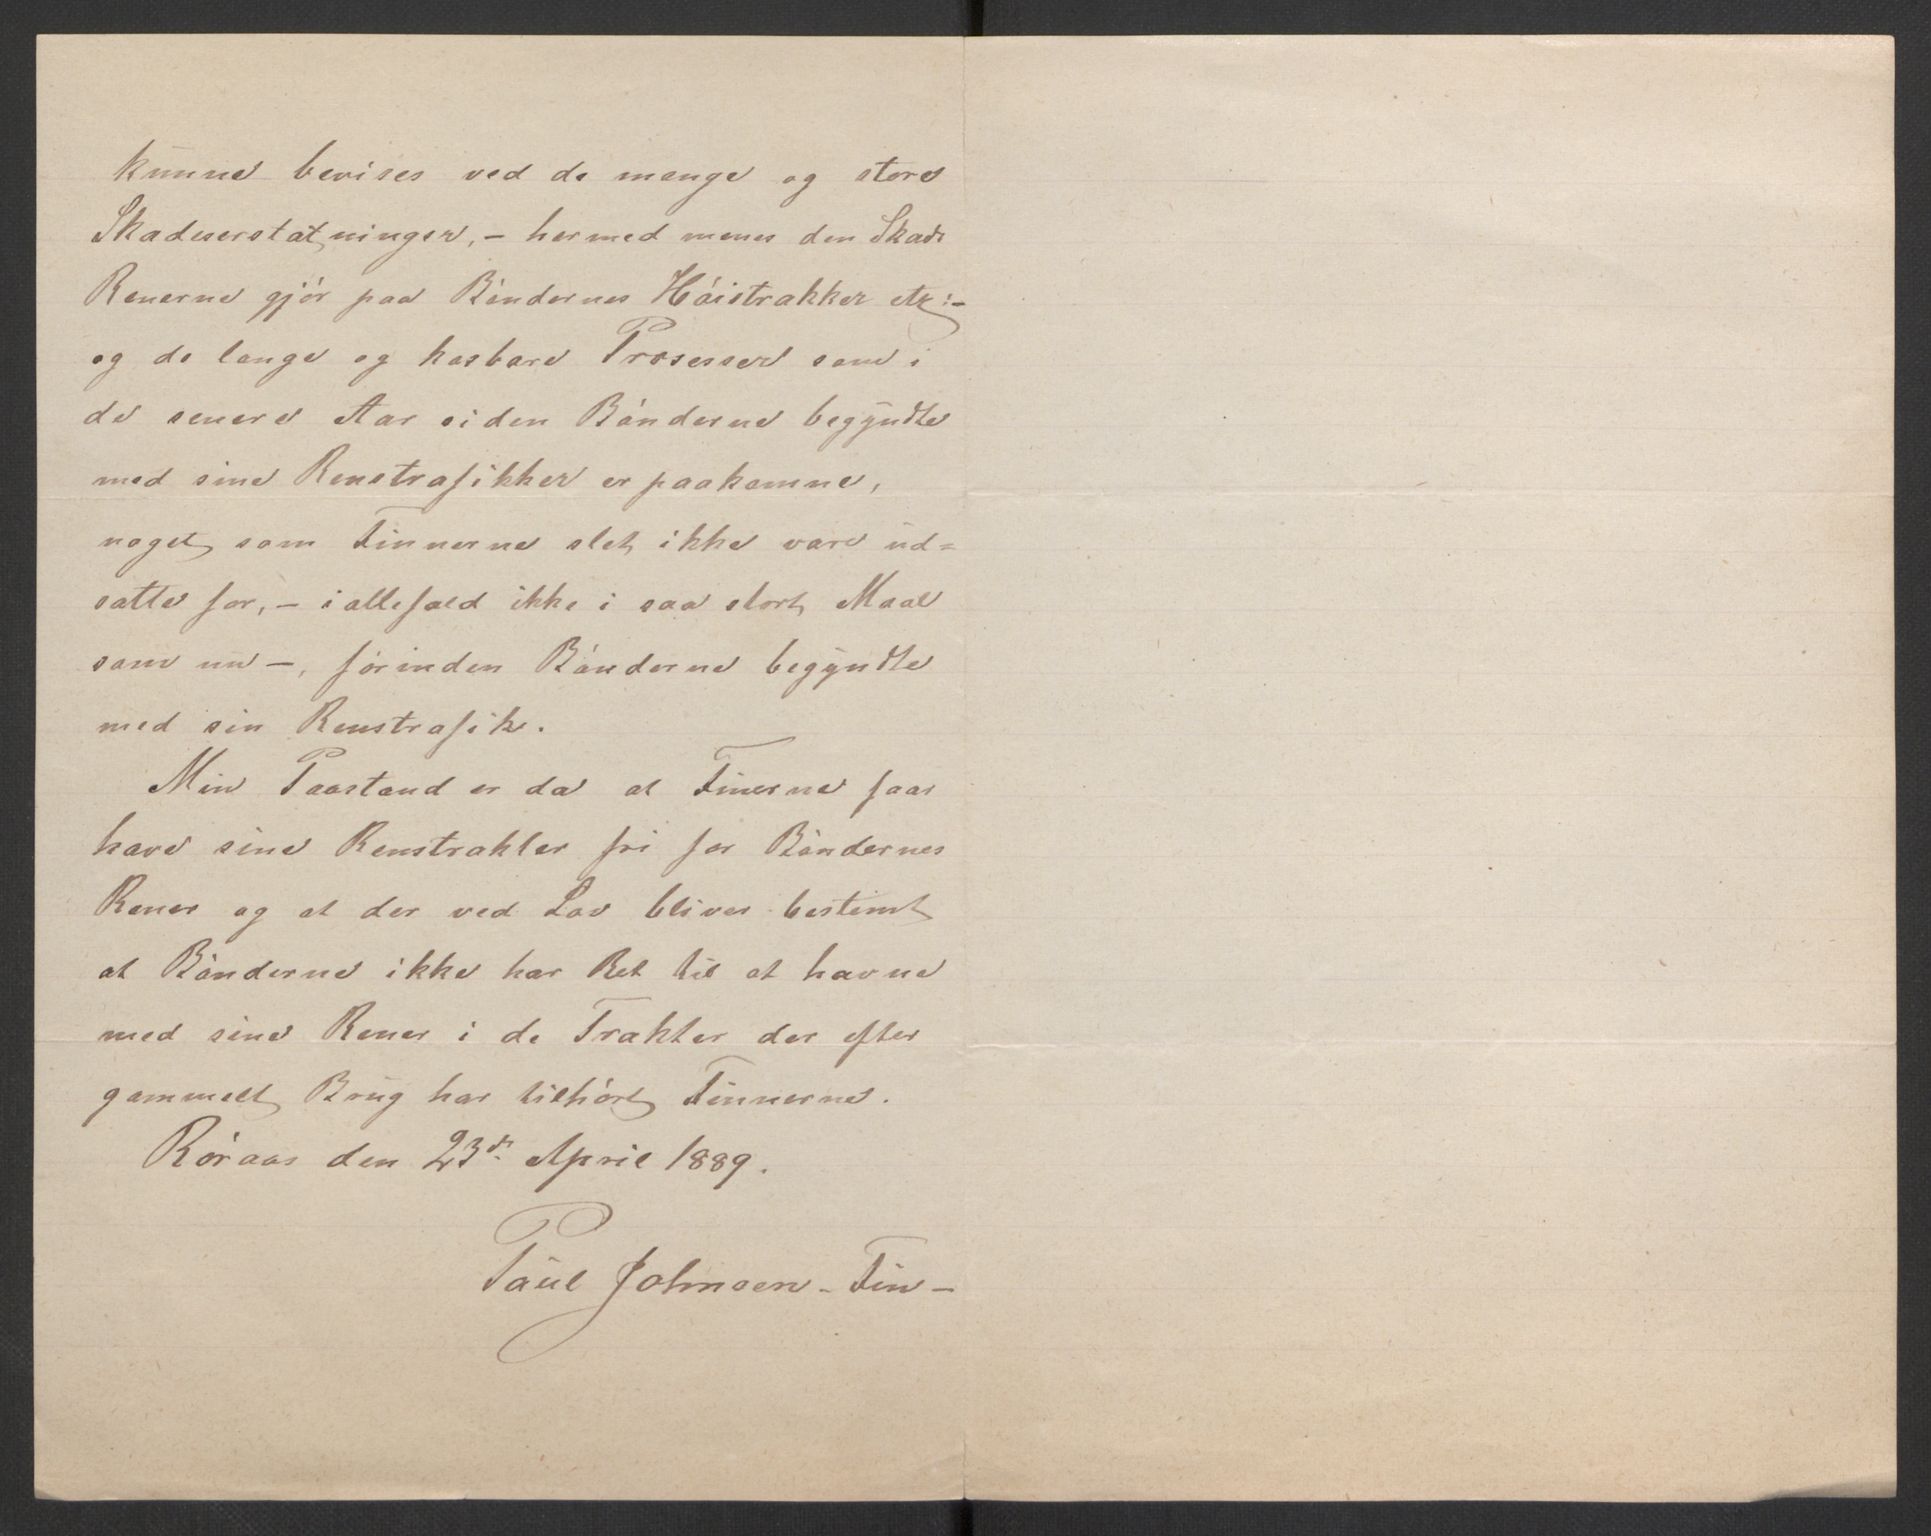 kunne bevises ved de mange og store
Skadeserstatninger, – hermed menes den Skade
Renerne gjór paa Bóndernes Hóistrakker etz: –
og de lange og kosbare Prosesser som i
de senere Aar siden Bónderne begyndte
med sine Renstrafikker er paakomne,
noget som Finnerne slet ikke vare ud=
satte for, – i allefald ikke i saa stort Maal
som nu –, fórinden Bónderne begyndte
med sin Renstrafik.
Min Paastand er da at Finerne faar
have sine Renstrakter fri for Bóndernes
Rener og at der ved Lov bliver bestemt
at Bónderne ikke har Ret til at havne
med sine Rener i de Trakter der efter
gammelt Brug har tilhórt Finnerne.
Róraas den 23de April 1889.
Paul Johnsen – Fin –